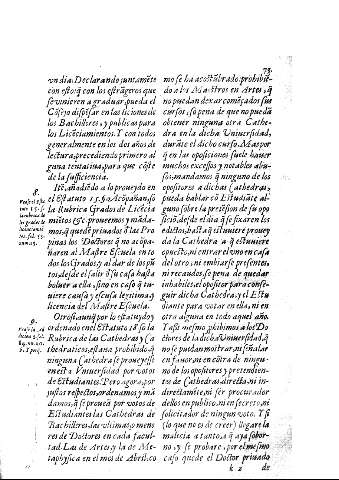 73.
vn dia. Declarando juntamẽte
con esto, q̃ con los estrãgeros que
se vinieren a graduar, pueda el
Cõsejo dispẽsar en las liciones de
los Bachilleres, y publicas para
los Licẽciamientos. Y con todos
generalmente en los dos años de
lectura, precediendo primero al
guna tentatiua, para que cõste
de la sufficiencia.
8.
Ite, añadiẽdo a lo proueydo en
el Estatuto 15. §. Acõpañan, so
la Rubrica Grados de Licẽcia
mẽtos &c. proueemos y mãda-
mos, q̃ quede priuados d'las Pro
pinas los Doctores q̃ no acõpa-
ñaren al Maestre Escuela en to-
dos los Grados, y al dar de los pũ-
tos, desde el salir d'su casa hasta
boluer a ella, sino en caso q̃ tu-
uiere causa y escusa legitima, y
licencia del Maestre Escuela.
9.
Otrosi, aunq̃ por lo estatuydo y
ordenado en el Estatuto 18. so la
Rubrica de las Cathedras y Ca
thedraticos, estaua prohibido, q̃
ninguna Cathedra se proueyesse
en esta Vniuersidad por votos
de Estudiantes. Pero agora, por
justos respectos, ordenamos y mã
damos, q̃ se prouea por votos de
Estudiantes las Cathedras de
Bachilleres, las vltimas, o meno
res de Doctores en cada facul-
tad. Las de Artes, y la de Me-
taphysica en el mes de Abril, co
mo se ha acostũbrado: prohibiẽ-
do a los Maestros en Artes, q̃
no puedan dexar començados sus
cursos, so pena de que no puedã
obtener ninguna otra Cathe-
dra en la dicha Vniuersidad,
durãte el dicho curso. Mas por
q̃ en las oposiciones suele hauer
muchos excessos, y notables abu-
sos, mandamos q̃ ninguno de los
opositores a dichas Cathedras,
pueda hablar cõ Estudiãte al-
guno sobre la pretẽsion de su opo
siciõ, desde el dia q̃ se fixaren los
edictos, hasta q̃ estuuiere prouey
da la Cathedra a q̃ estuuiere
opuesto, ni entrar el vno en casa
del otro, ni embiarse presentes,
ni recaudos, so pena de quedar
inhabiles, el opositor para conse-
guir dicha Cathedra, y el Estu
diante para votar en ella, ni en
otra alguna en todo aquel año.
Y assi mesmo prohibimos a los Do
ctores de la dicha Vniuersidad, q̃
no se puedan mostrar, ni señalar
en fauor, ni en cõtra de ningu-
no de los opositores y pretendien-
tes de Cathedras directa, ni in-
directamẽte, ni ser procurador
dellos en publico, ni en secreto, ni
solicitador de ningun voto. Y si
(lo que no es de creer) llegare la
malicia a tanto, q̃ aya sobor-
no, y se probare, por el mesmo
caso quede el Doctor priuado
k 2 de